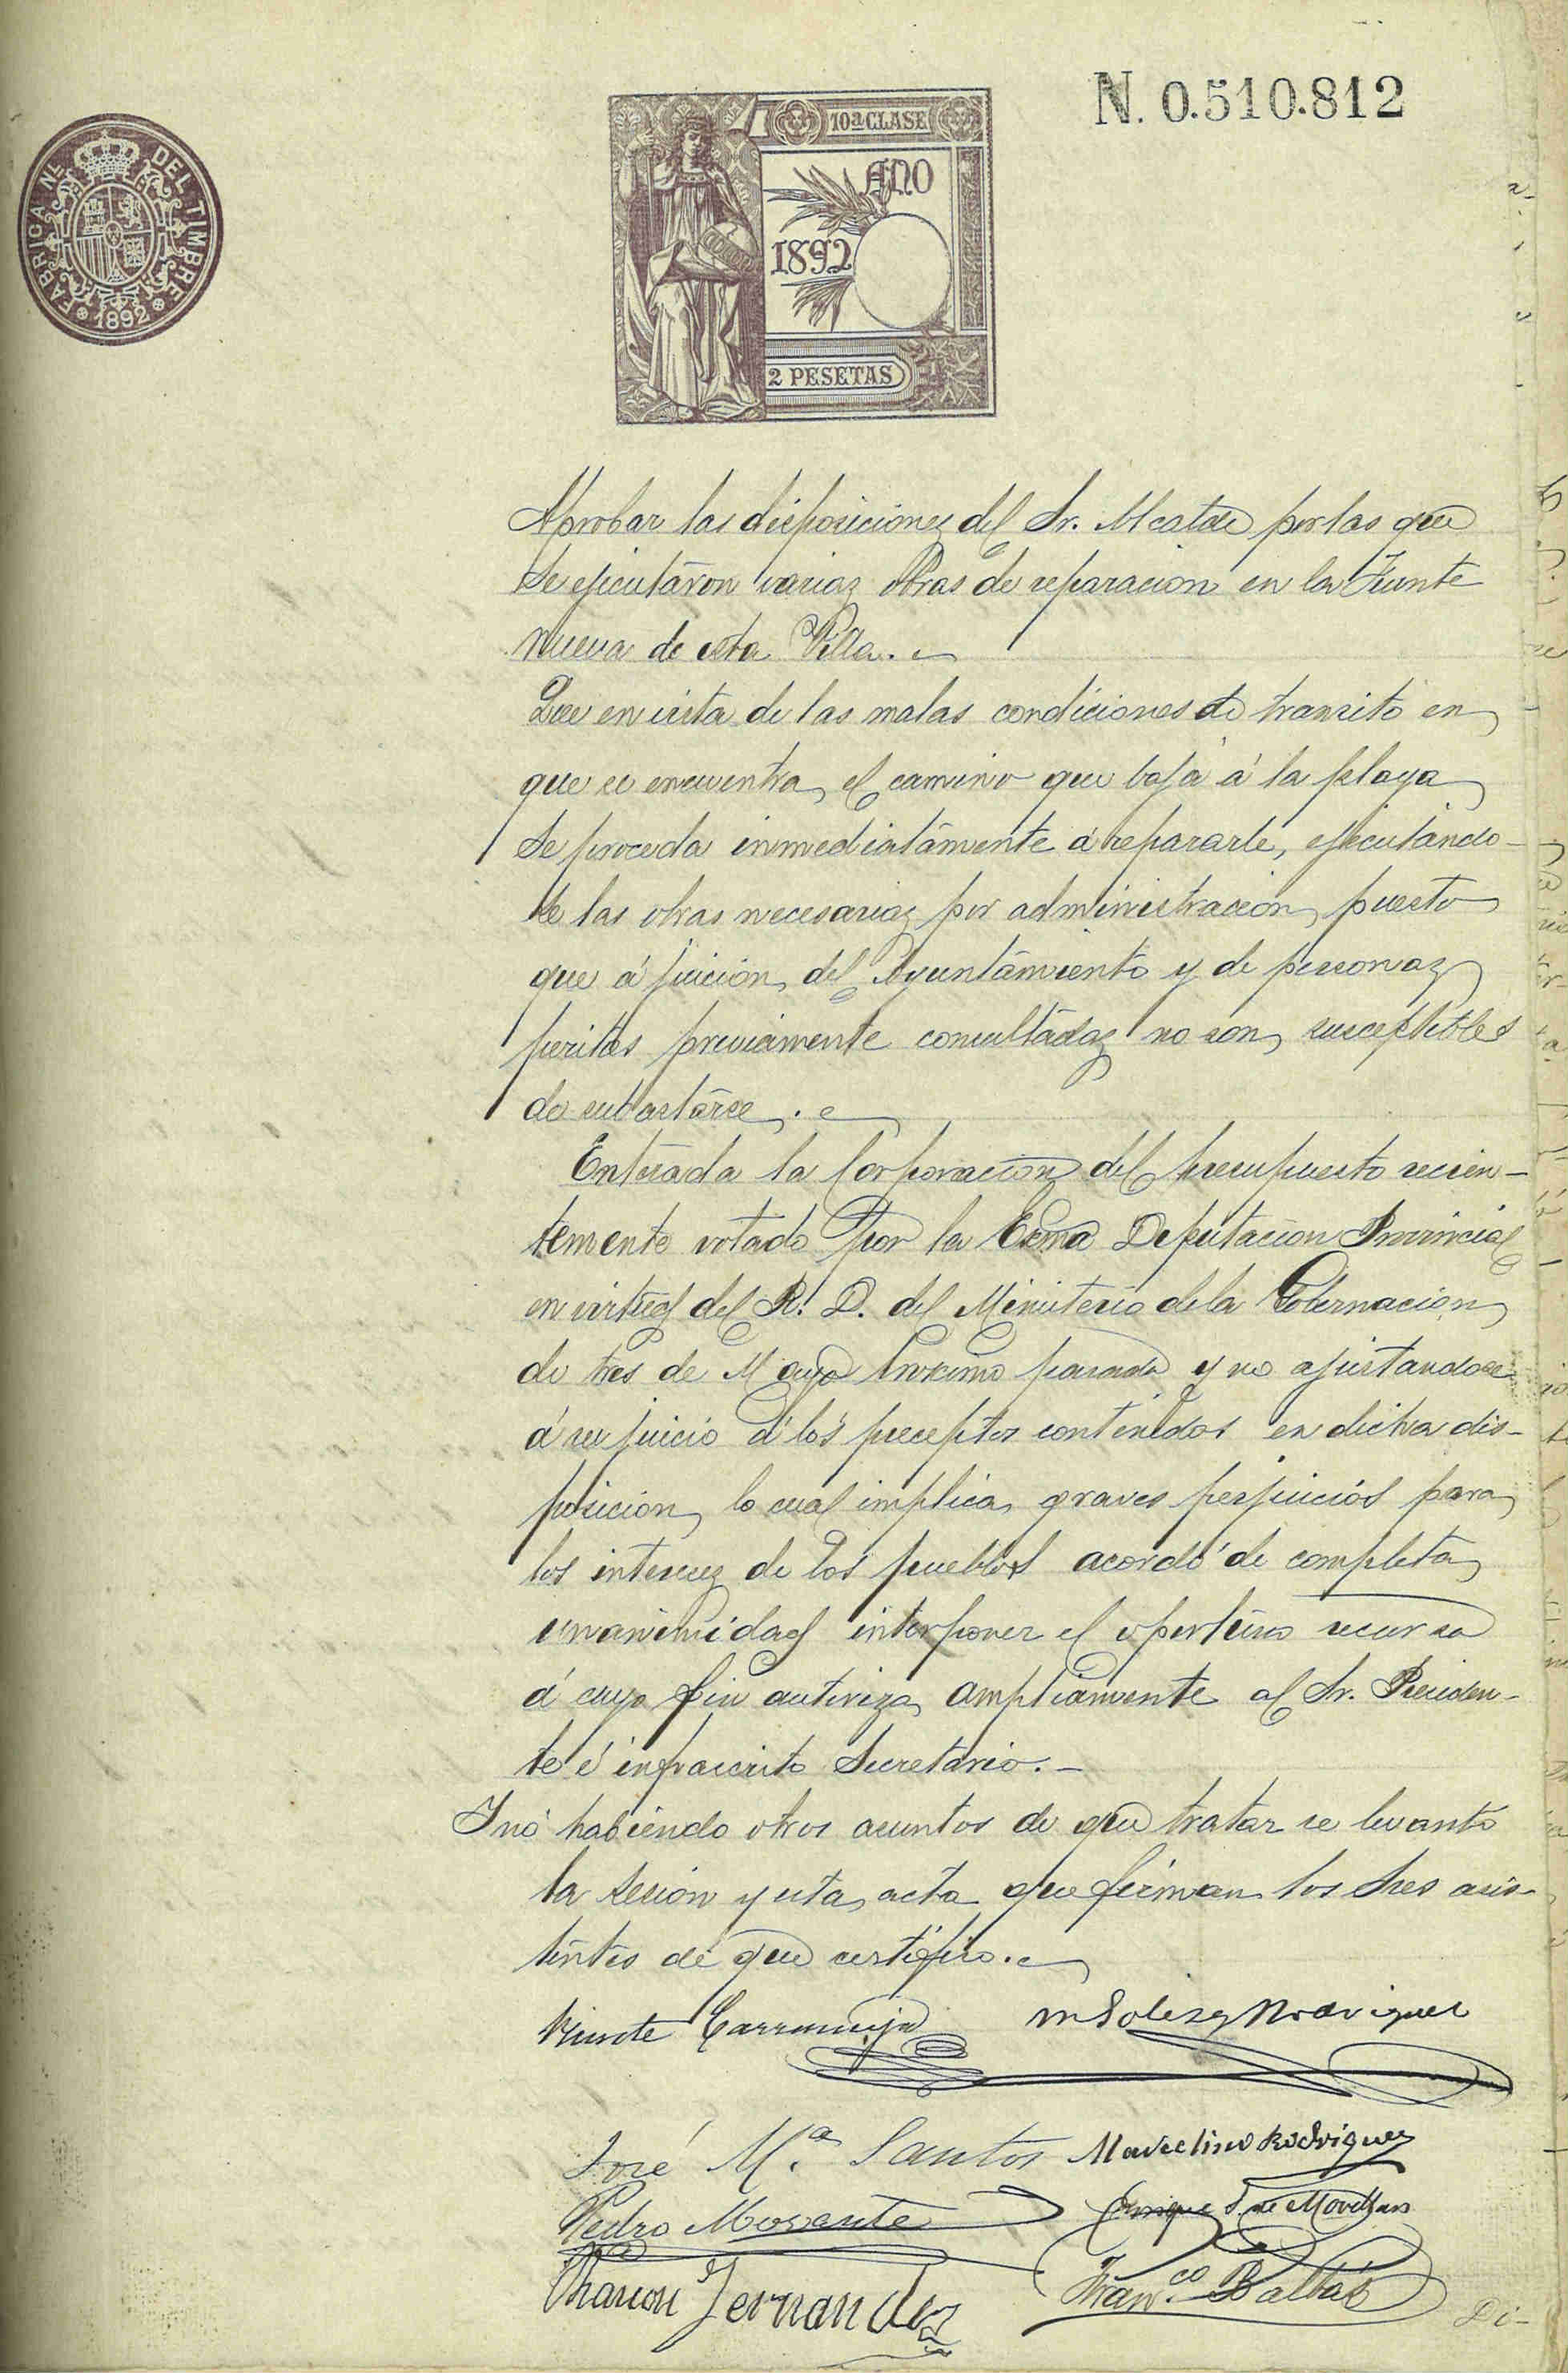 N. 0.510.812
FABRICA N.L DEL TIMBRE
1892
10ª CLASE
AÑO
1892
2 PESETAS
Aprobar las disposiciones del Sr. Alcalde por las que
se ejecutáron varias obras de reparacion en la Fuente
nueva de esta Villa.
Que en vista de las malas condiciones de transito en
que se encuentra el camino que baja á la playa
se proceda inmediatamente á repararle, ejecutando-
se las obras necesarias por administracion, puesto
que á juicion del Ayuntamiento y de personas
peritas previamente consultadas no son susceptibles
de subastarse.
Enterada la Corporacion del presupuesto recien-
temente votado por la Excma Diputacion Provincial
en virtud del R. D. del Ministerio de la Gobernacion
de tres de Mayo proximo pasado y no ajustandose
á su juicio á los preceptos contenidos en dicha dis-
posicion, lo cual implica graves perjuicios para
los intereses de los pueblos acordó de completa
unanimidad interponer el oportuno recurso
á cuyo fin autoriza ampliamente al Sr. Presiden-
te é infrascrito Secretario.
Y no habiendo otros asuntos de que tratar se levantó
la sesion y esta acta que firman los Sres asis-
tentes de que certifico.
Vicente Carranceja
M Solis y Rodriguez
José M.ª Santos
Marcelino Rodriguez
Pedro Morante
Enrique
Ramon Fernandez
Fran.co Balbás
Di-